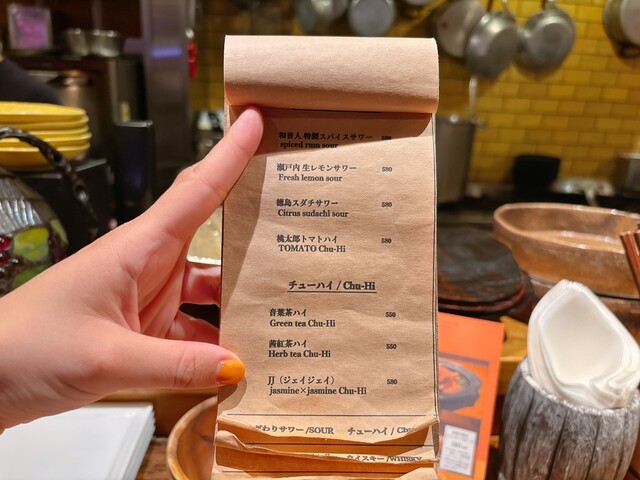 和音人 特製スパイスサワー 580
spiced rum sour
瀬戸内 生レモンサワー 580
Fresh lemon sour
徳島スダチサワー 580
Citrus sudachi sour
桃太郎トマトハイ 580
TOMATO Chu-Hi
チューハイ / Chu-Hi
音葉茶ハイ 550
Green tea Chu-Hi
茜紅茶ハイ 550
Herb tea Chu-Hi
JJ（ジェイジェイ） 580
jasmine×jasmine Chu-Hi
わりサワー/SOUR チューハイ / Chu
ウイスキー/WHISKY